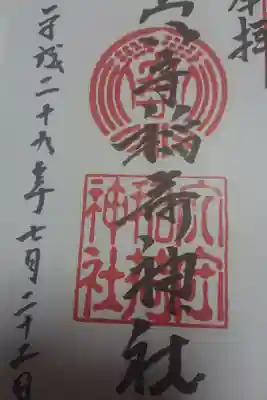 奉拝
穴守稲荷神社
穴守
稲荷
神社
平成二十九年七月二十三日